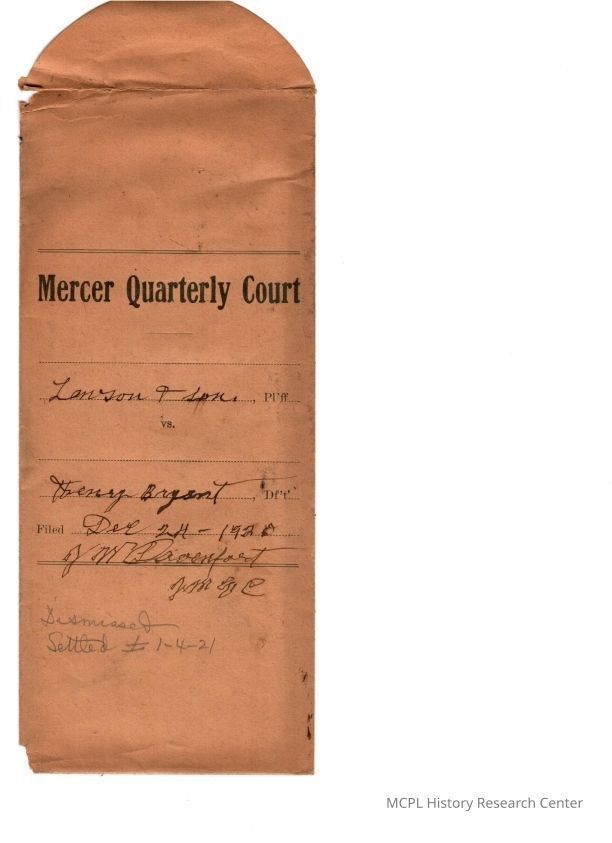 Mercer Quarterly Court
Lawson & son. , Pl'ff
vs.
Henry Bryant , Df't
Filed Dec 24 - 1920
J M Davenport
Dismissed
Settled 1-4-21
MCPL History Research Center